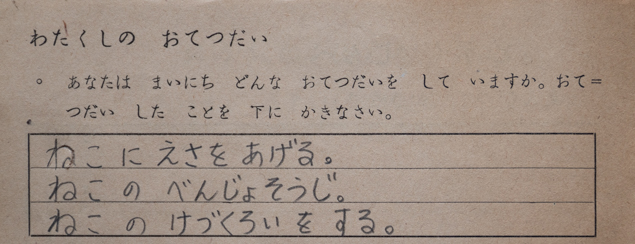 わたくしの おてつだい
。 あなたは まいにち どんな おてつだいを して いますか。おて=
つだい した ことを 下に かきなさい。
ねこ に えさを あげる。
ねこ の べんじょそうじ。
ねこ の けづくろい を する。